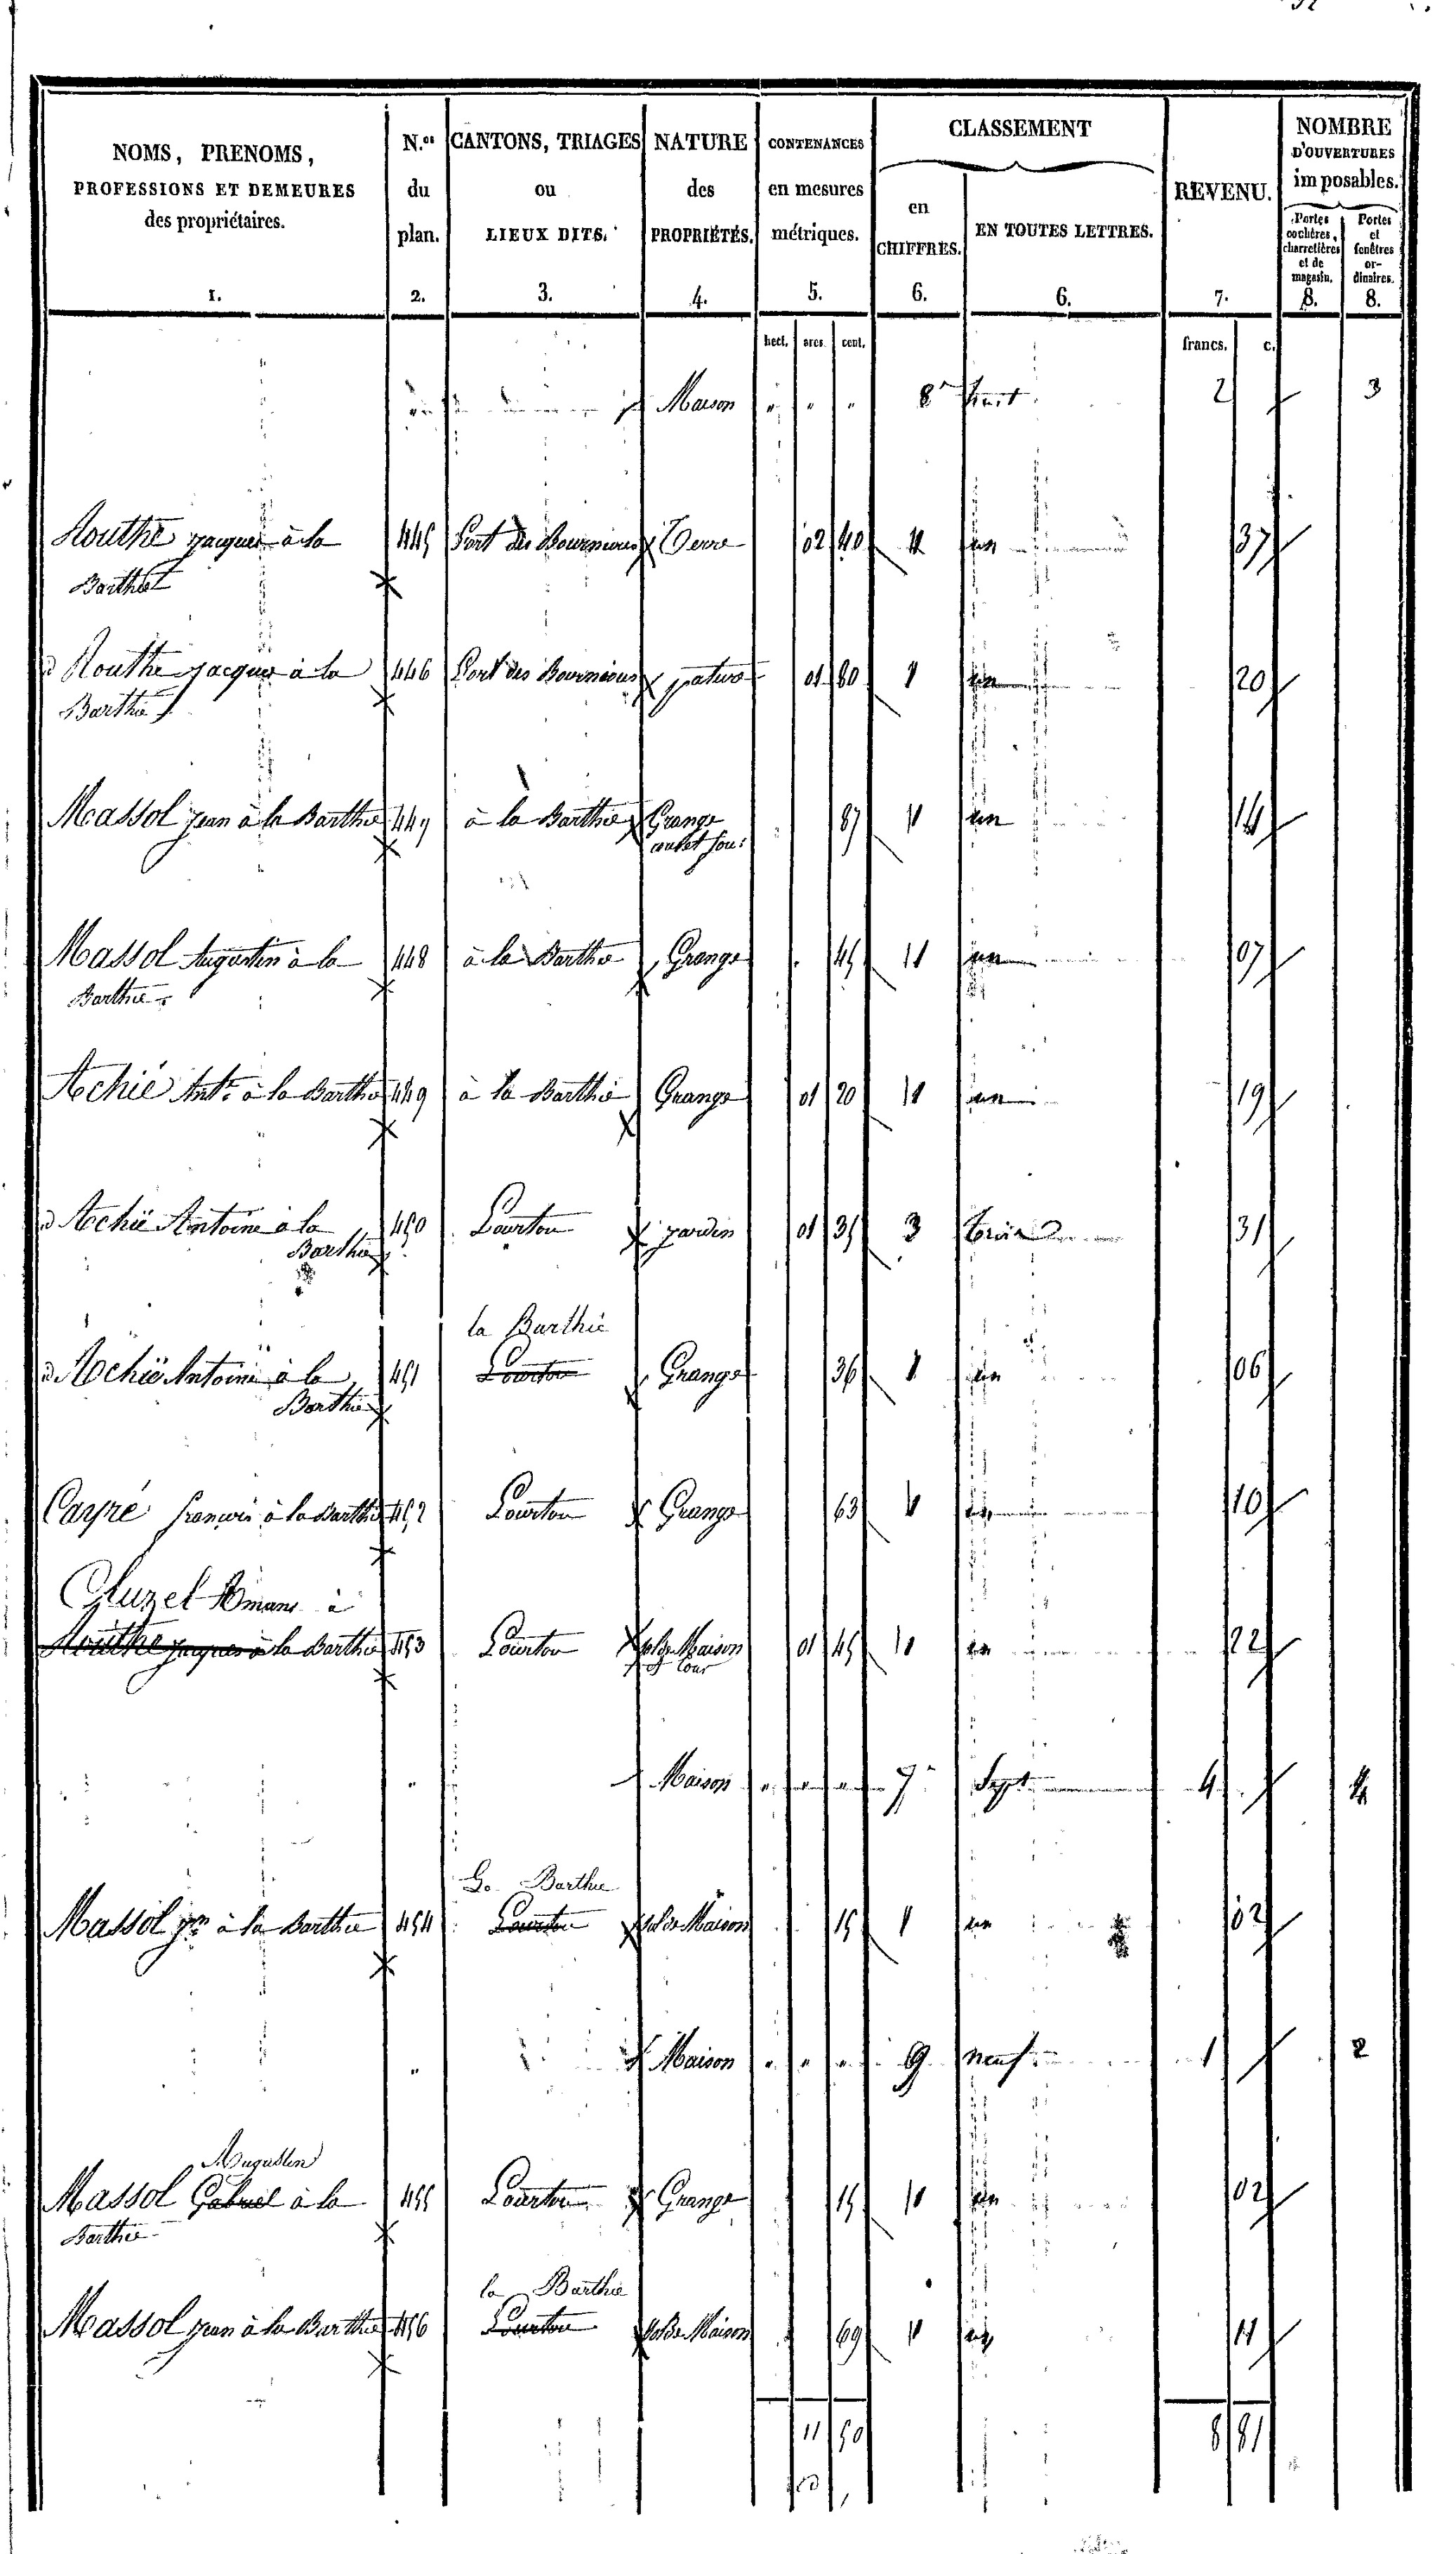 NOMS, PRENOMS, PROFESSIONS ET DEMEURES des propriétaires. 1.
N.os du plan. 2.
CANTONS, TRIAGES ou LIEUX DITS. 3.
NATURE des PROPRIÉTÉS. 4.
CONTENANCES en mesures métriques. 5.
CLASSEMENT
en CHIFFRES. 6.
EN TOUTES LETTRES. 6.
REVENU. 7.
NOMBRE D'OUVERTURES imposables.
Portes cochères, charretières et de magasin. 8.
Portes et fenêtres ordinaires. 8.
hect. ares cent. francs. c.
Maison " " " 8e huit 2 3
Routhe jacques à la 445 Port des Bournious Terre 02 40 1 un 37
Barthie
Routhe jacques à la 446 Port des Bournious pature 01 80 1 un 20
Barthie
Massol jean à la Barthie 447 à la Barthie Grange 87 1 un 14
Massol Augustin à la 448 à la Barthie Grange 45 1 un 07
Barthie
Achié Ant.e à la Barthie 449 à la Barthie Grange 01 20 1 un 19
Achié Antoine à la 450 Lourtou jardin 01 35 3 trois 31
Barthie
la Barthie
Achié Antoine à la 451 Lourtou Grange 36 1 un 06
Barthie
Carpré francois à la Barthie 452 Lourtou Grange 63 1 un 10
Cluzel Amans à
Routhe jacques à la Barthie 453 Lourtou sol de Maison 01 45 1 un 22
et cour
" Maison " " " 7e Sept 4 4
La Barthie
Massol jn à la Barthie 454 Lourtou sol de Maison 15 1 un 02
" Maison " " " 9 neuf 1 2
Augustin
Massol Gabriel à la 455 Lourtou Grange 15 1 un 02
Barthie
la Barthie
Massol jean à la Barthie 456 Lourtou sol de Maison 69 1 un 11
11 50 8 81